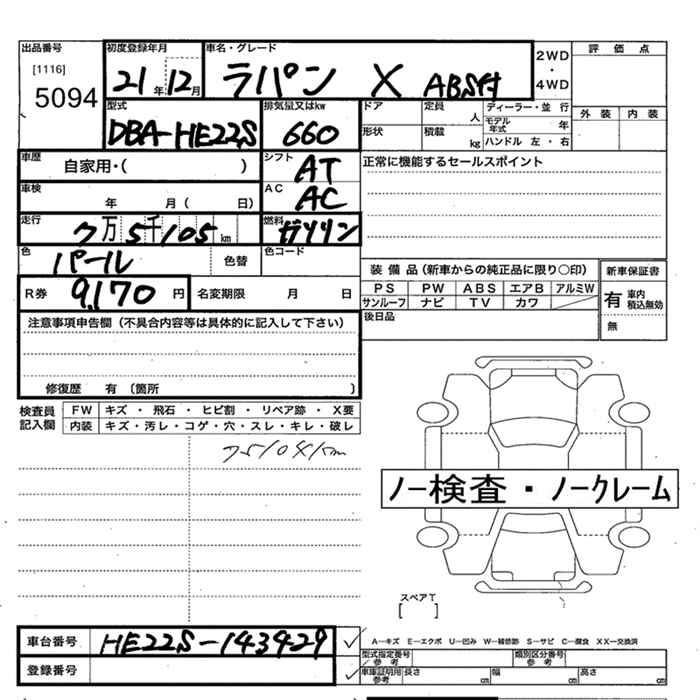 出品番号 初度登録年月 車名・グレード 2WD・4WD 評価点
[1116]
5094 21年12月 ラパン X ABS付
外装 内装
型式 排気量又はkw ドア 定員 人 ディーラー・並 行
DBA-HE22S 660 形状 積載 kg モデル年式 年
ハンドル 左・右
車歴 自家用・( ) シフト AT 正常に機能するセールスポイント
車検 年 月( 日) AC AC
走行 7万5千105km 燃料 ガソリン
色 パール 色替 色コード
装備品(新車からの純正品に限り○印) 新車保証書
R券 9,170円 名変期限 月 日
PS PW ABS エアB アルミW
サンルーフ ナビ TV カワ
有 車内積込無効
無
後日品
注意事項申告欄(不具合内容等は具体的に記入して下さい)
修復歴 有 〔箇所 〕
検査員記入欄 FW キズ・飛石・ヒビ割・リペア跡・X要
内装 キズ・汚レ・コゲ・穴・スレ・キレ・破レ
75104km
ノー検査・ノークレーム
スペアT
[ ]
車台番号 HE22S-143429
登録番号
A-キズ E-エクボ U-凹み W-補修跡 S-サビ C-腐食 XX-交換済
型式指定番号 参考 類別区分番号 参考
車庫証明用参考 長さ cm 幅 cm 高さ cm